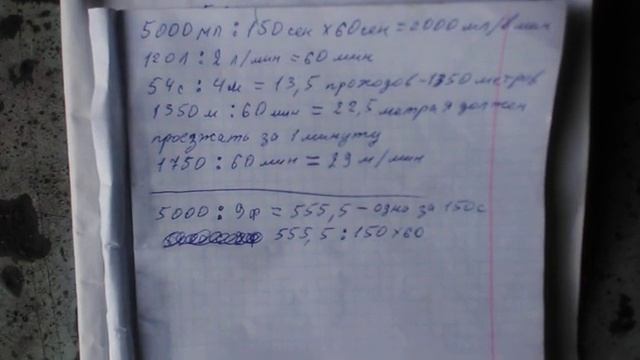 5000мл : 150сек х 60сек = 2000 мл/1 мин
120л : 2 л/мин = 60 мин
54с : 4м = 13,5 проходов - 1350 метров
1350 м : 60 мин = 22,5 метра я должен
проезжать за 1 минуту
1750 : 60 мин = 29 м/мин
5000 : 9ф = 555,5 - одна за 150с
555,5 : 150 х 60